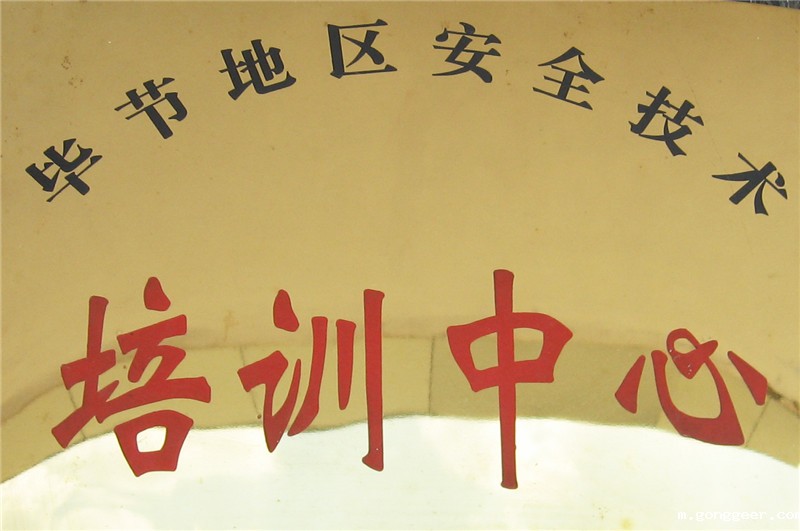 毕节地区安全技术
培训中心
m.gonggeer.com